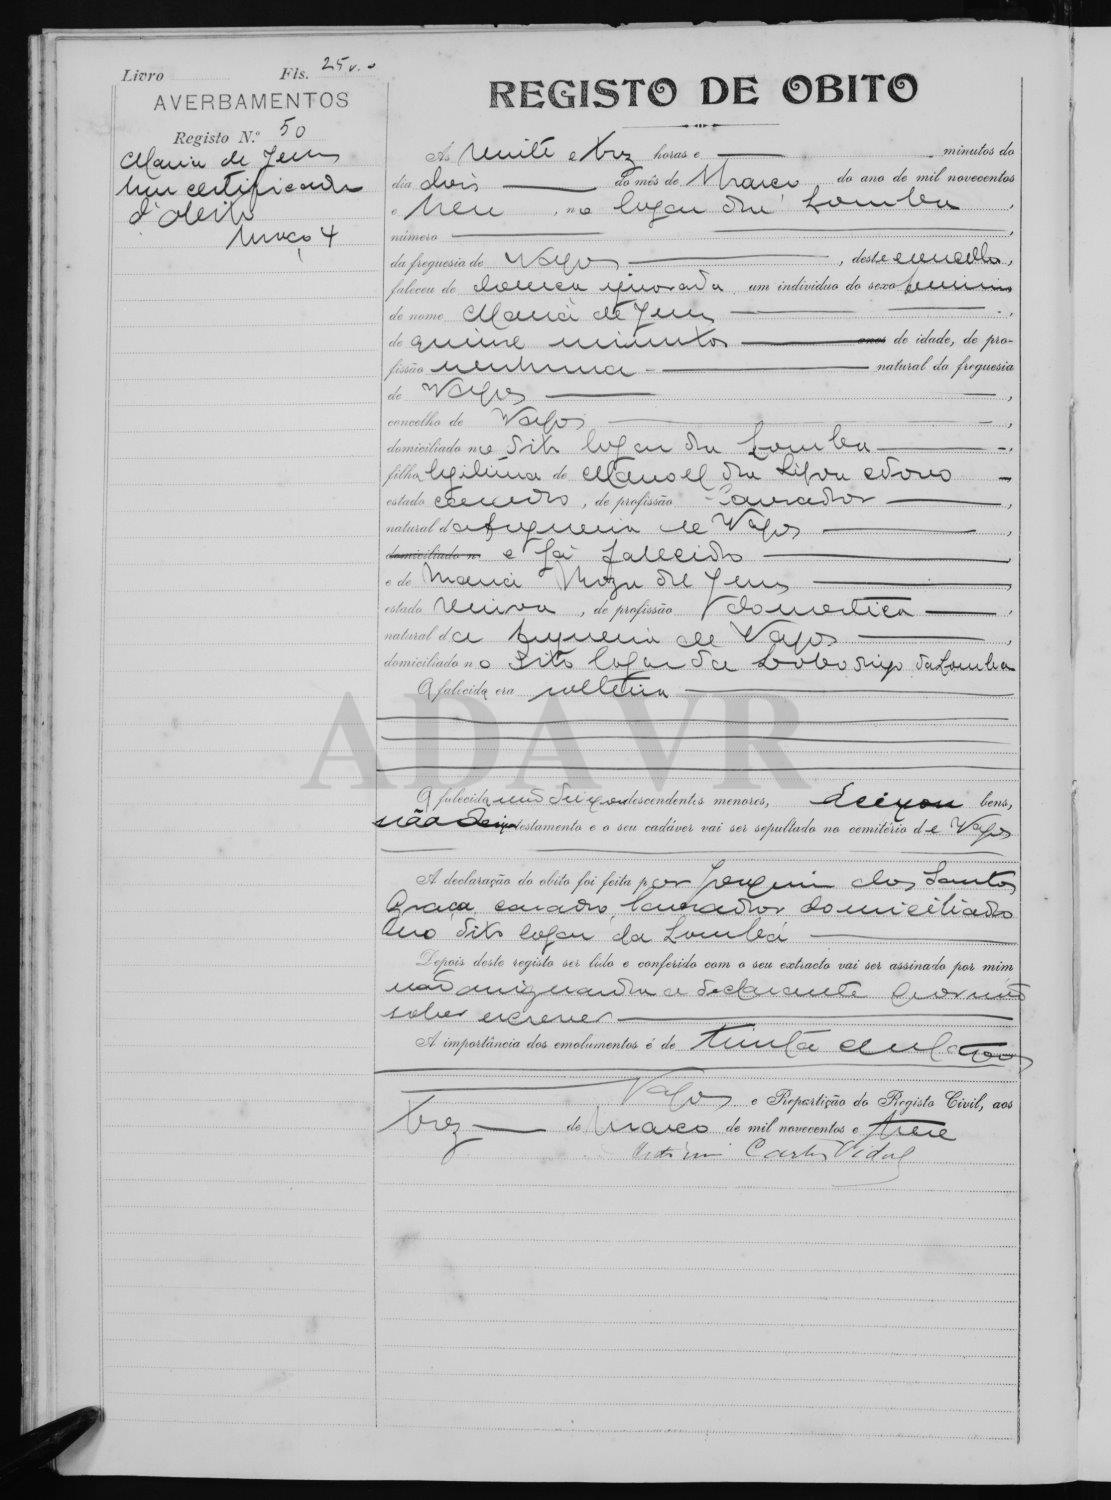 Livro Fls. 25 v.o
AVERBAMENTOS
Registo N.º 50
Maria de Jesus
um certificado
d'obito
Março 4
REGISTO DE OBITO
Ás vinte e trez horas e minutos do
dia dois do mês de Março do ano de mil novecentos
e treze, no logar da Lomba,
número
da freguesia de Vagos, deste concelho,
faleceu de doença ignorada um individuo do sexo feminino
de nome Maria de Jesus
de quinze minutos anos de idade, de pro-
fissão nenhuma natural da freguesia
de Vagos,
concelho de Vagos,
domiciliado no dito logar da Lomba,
filha legitima de Manoel da
estado casado, de profissão lavrador,
natural da freguesia de Vagos,
domiciliado n e já falecido
e de Maria Roza de Jesus,
estado viuva, de profissão domestica,
natural da freguesia de Vagos,
domiciliado no dito logar da da Lomba
A falecida era solteira
ADAVR
A falecida não deixou descendentes menores, deixou bens,
não deixou testamento e o seu cadáver vai ser sepultado no cemitério de Vagos
A declaração do obito foi feita por Joaquim dos Santos
Graça, casado, lavrador domiciliado
no dito logar da Lomba
Depois deste registo ser lido e conferido com o seu extracto vai ser assinado por mim
não o declarante por não
saber escrever
A importância dos emolumentos é de trinta centavos
Vagos e Repartição do Registo Civil, aos
trez de Março de mil novecentos e treze
Carlos Vidal